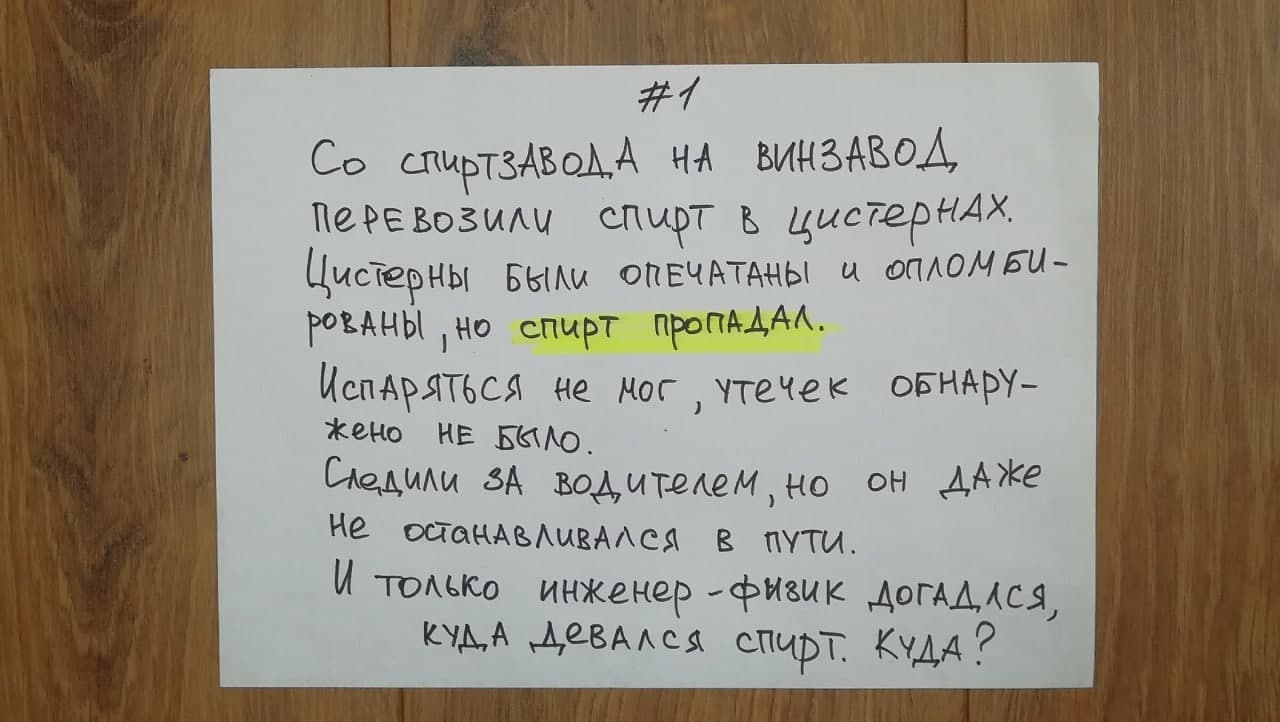 #1
Со спиртзавода на винзавод
перевозили спирт в цистернах.
Цистерны были опечатаны и опломби-
рованы, но спирт пропадал.
Испаряться не мог, утечек обнару-
жено не было.
Следили за водителем, но он даже
не останавливался в пути.
И только инженер-физик догадался,
куда девался спирт. Куда?